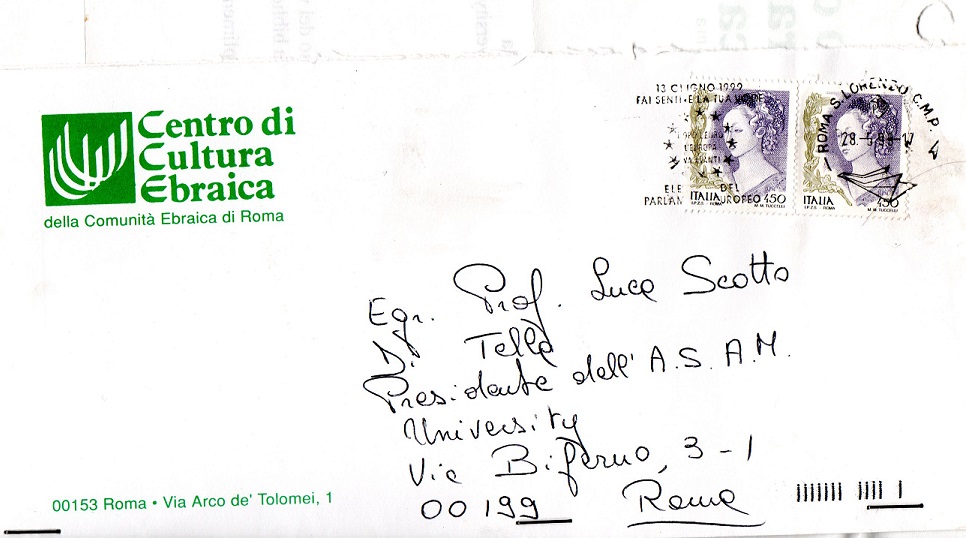 Centro di
Cultura
Ebraica
della Comunità Ebraica di Roma
13 GIUGNO 1999
FAI SENTIRE LA TUA VOCE
L'EUROPA
VA AVANTI
PARLAM EUROPEO
ELE DEL
ROMA S.LORENZO C.M.P.
ITALIA 450
I.P.Z.S. - ROMA M.M. TUCCELLI
ITALIA 450
I.P.Z.S. - ROMA M.M. TUCCELLI
Egr. Prof. Luca Scotto
Di Tella
Presidente dell' A.S.A.M.
University
Via Biferno, 3-1
00199 Roma
00153 Roma • Via Arco de' Tolomei, 1